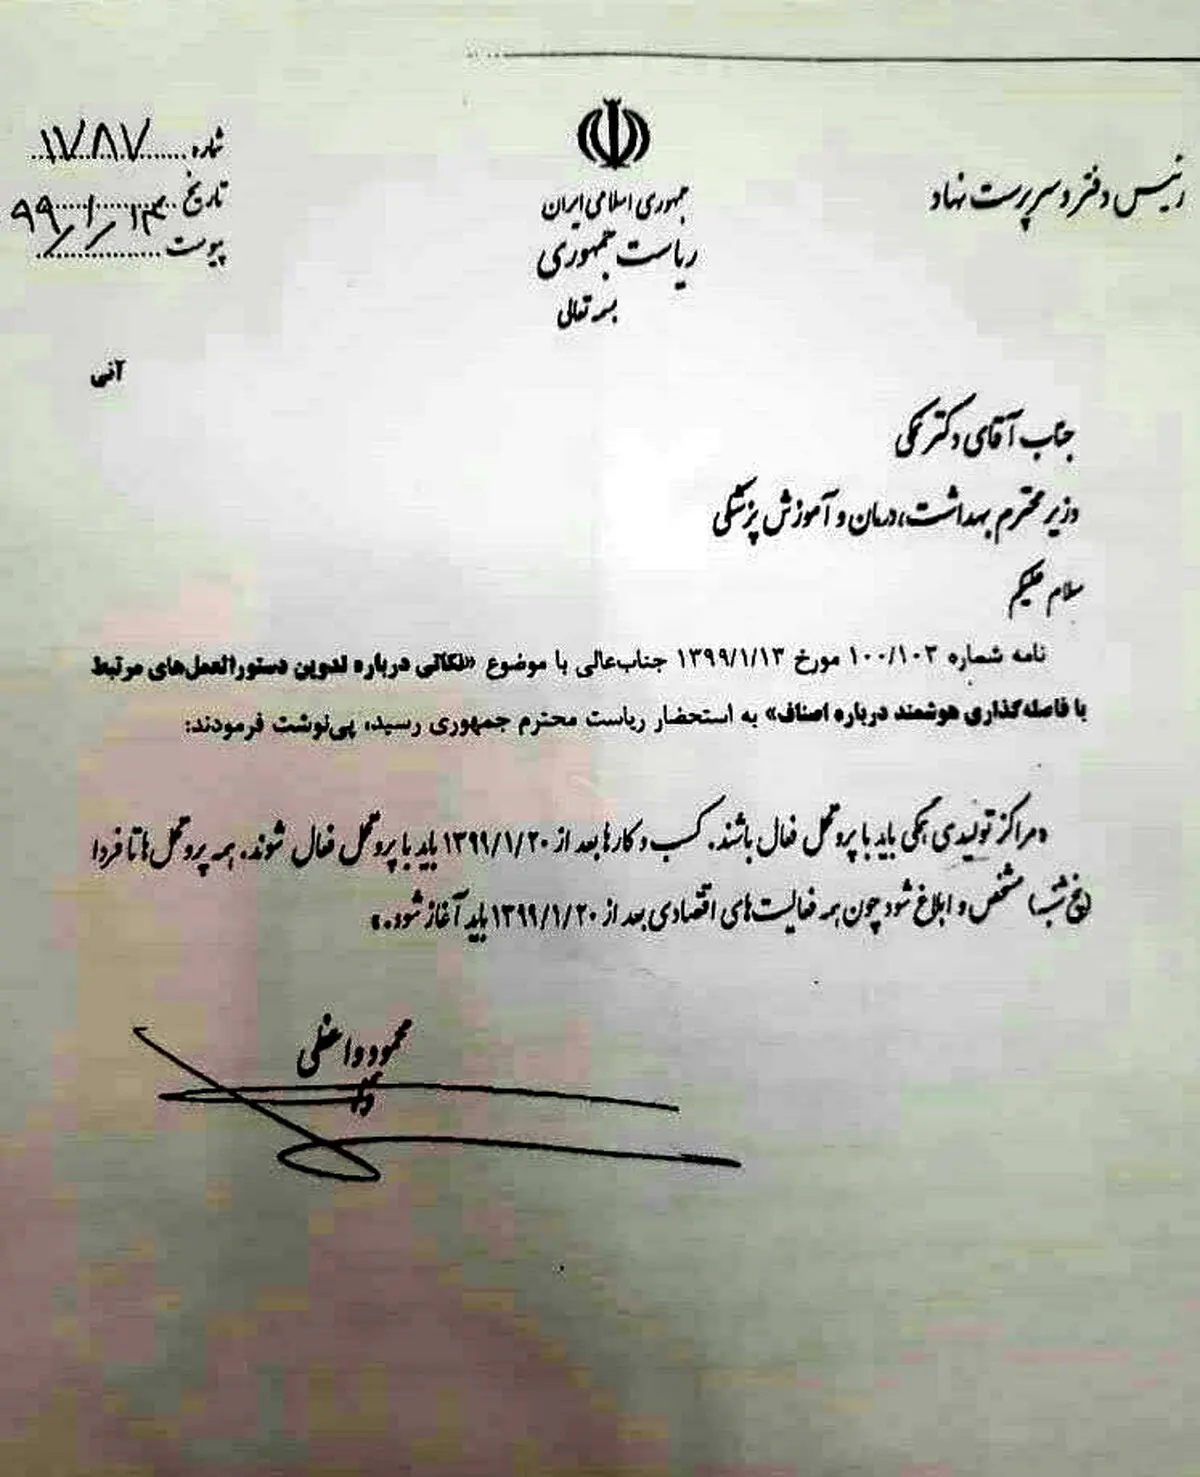 رئیس دفتر و سرپرست نهاد
جمهوری اسلامی ایران
ریاست جمهوری
بسمه تعالی
شماره ۱۷۸۷
تاریخ ۹۹/۱/۱۳
پیوست
آنی
جناب آقای دکتر نمکی
وزیر محترم بهداشت، درمان و آموزش پزشکی
سلام علیکم
نامه شماره ۱۰۰/۱۰۳ مورخ ۱۳۹۹/۱/۱۳ جناب‌عالی با موضوع «نکاتی درباره تدوین دستورالعمل‌های مرتبط
با فاصله‌گذاری هوشمند درباره اصناف» به استحضار ریاست محترم جمهوری رسید، پی‌نوشت فرمودند:
«مراکز تولیدی همگی باید با پروتکل فعال باشند. کسب و کارها بعد از ۱۳۹۹/۱/۲۰ باید با پروتکل فعال شوند. همه پروتکل‌ها تا فردا
(پنج شنبه) مشخص و ابلاغ شود چون همه فعالیت‌های اقتصادی بعد از ۱۳۹۹/۱/۲۰ باید آغاز شود.»
محمود واعظی